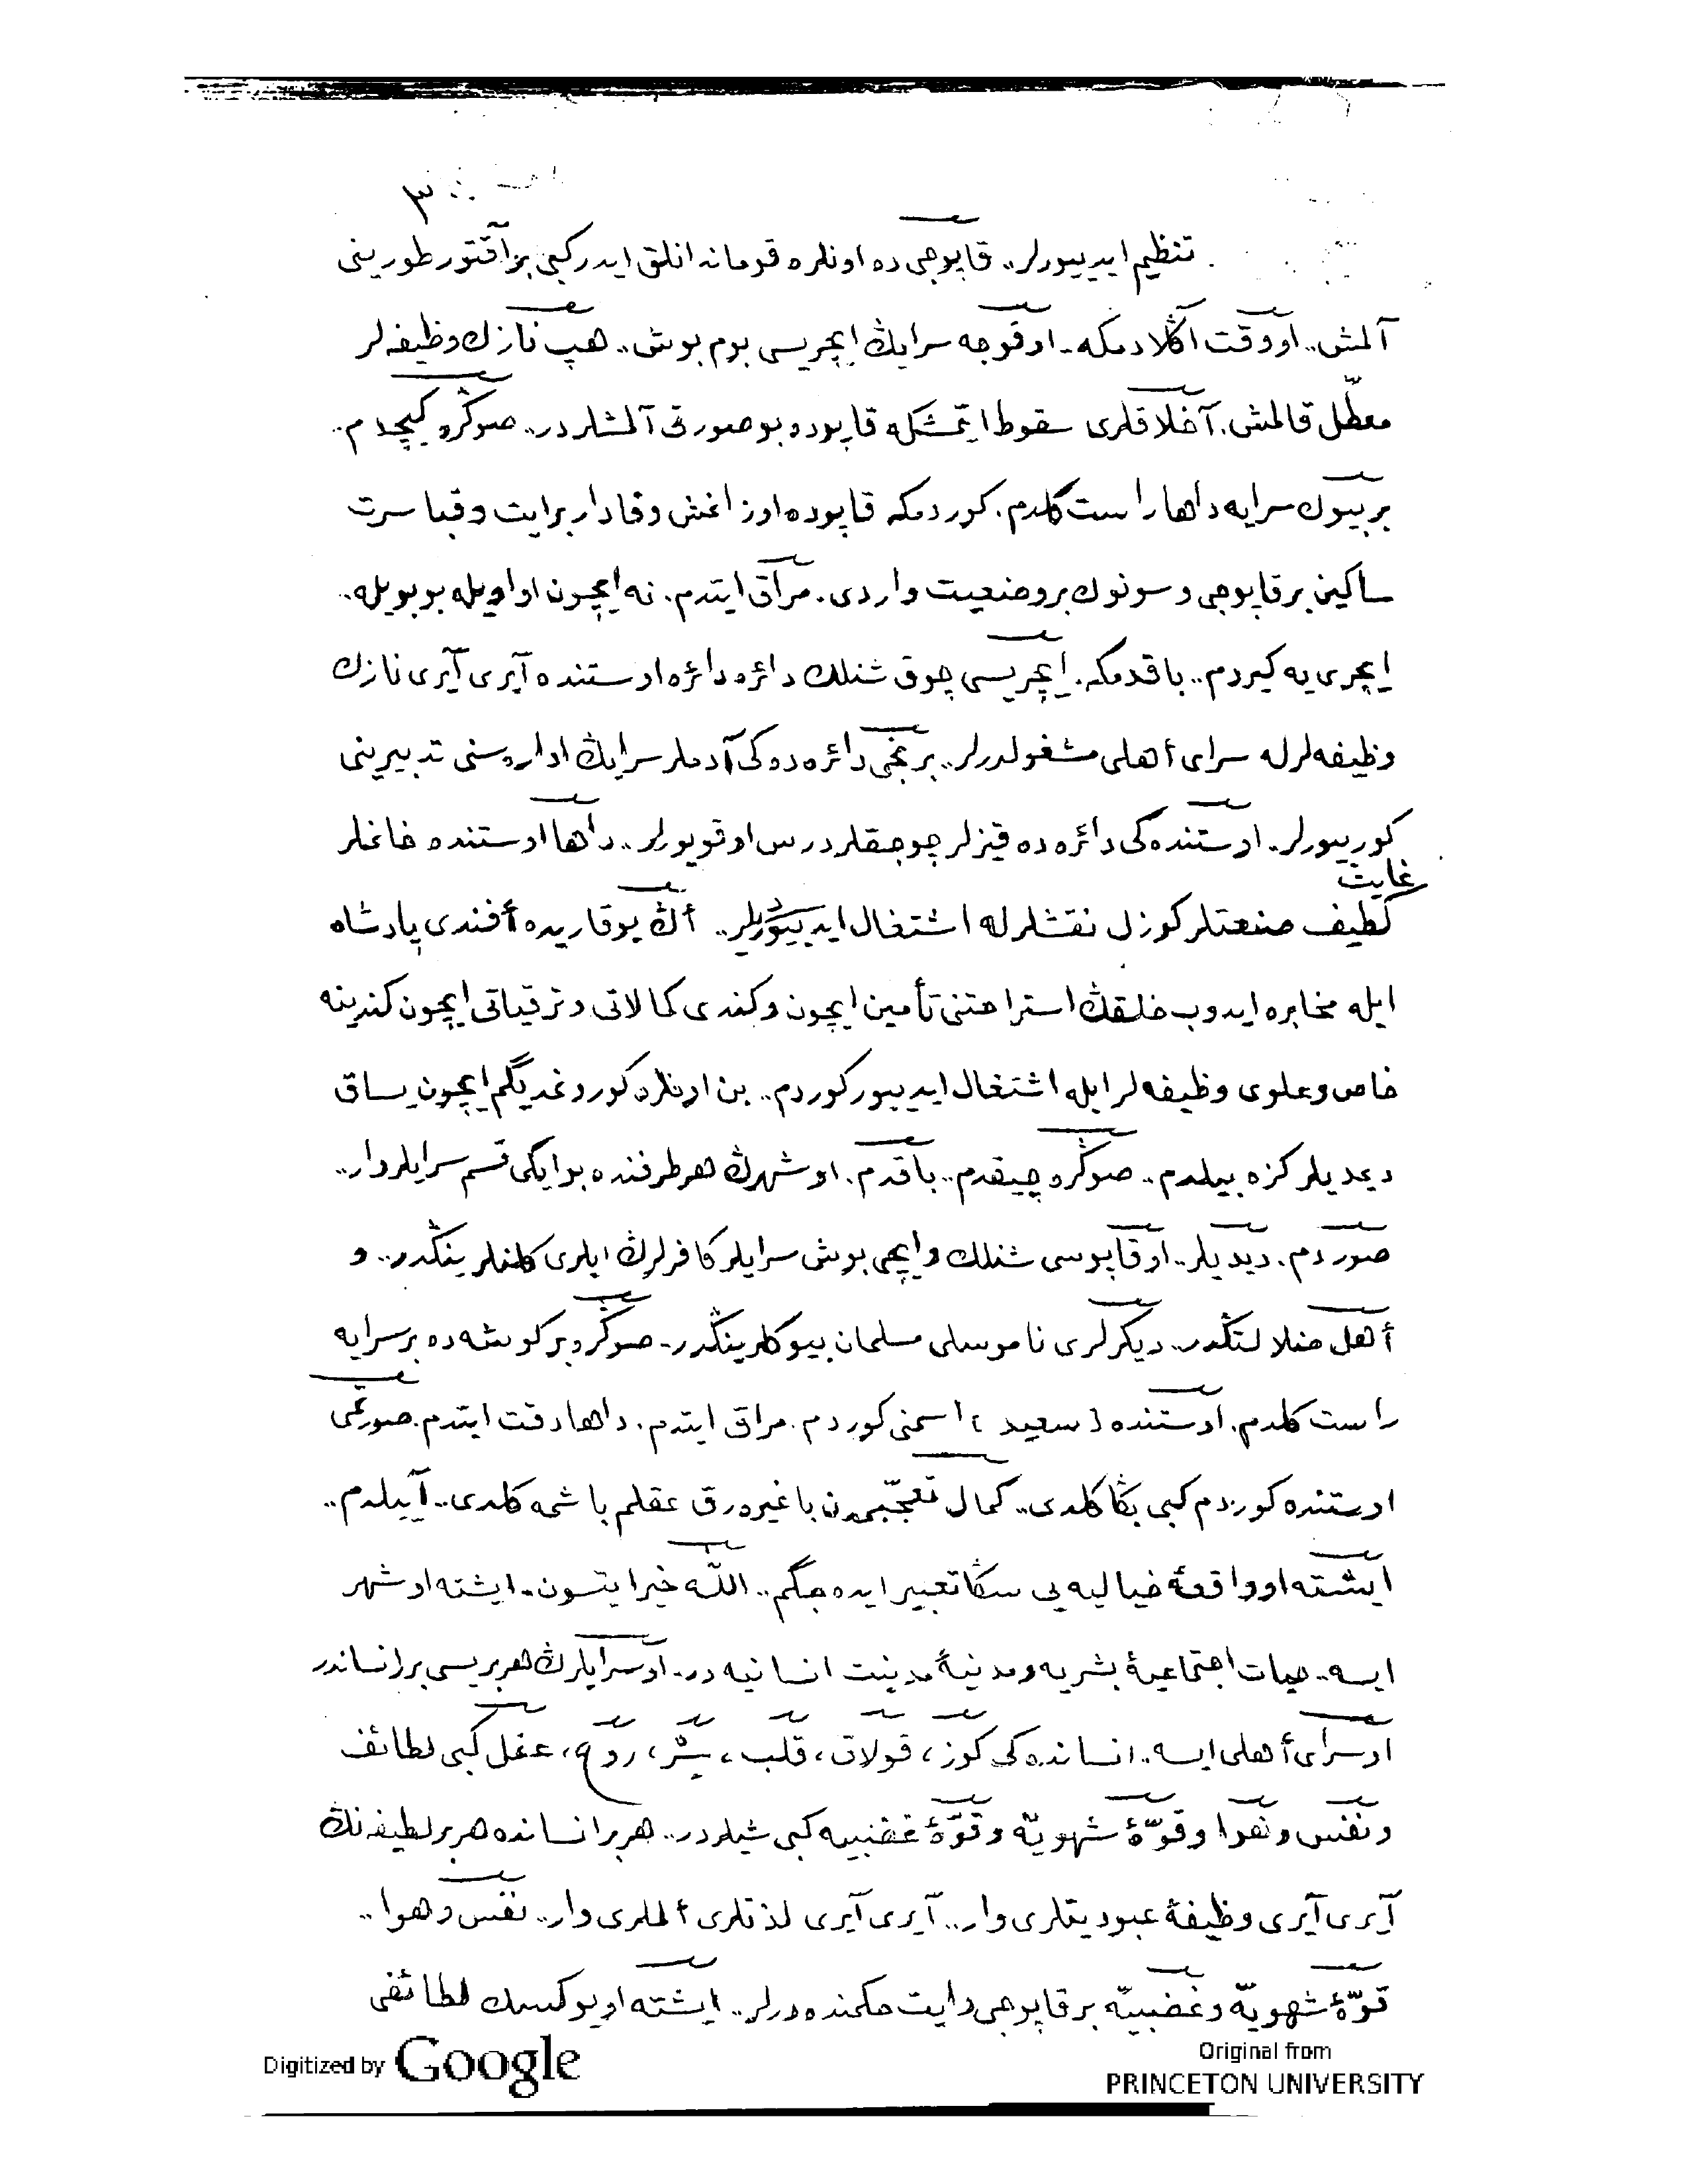 ٣
تنظیم ایدییورلر.. قاپوجی ده اونلره قوماندانلق ایدر کبی بر آقتور طورینی
آلمش.. او وقت آڭلادم که. او قوجه سرایڭ ایچریسی بوم بوش.. هپ نازك وظیفه لر
معطّل قالمش. آخلاقلری سقوط ایتمشکه قاپوده بو صورتی آلمشلردر.. صوڭره کیچدم..
بر بیوك سرایه داها راست کلدم. کوردم که قاپوده اوزانمش وفادار بر ایت و قبا سرت
ساکین بر قاپوجی و سونوك بر وضعیت واردی. مراق ایتدم. نه ایچون او اویله بو بویله.
ایچری یه کیردم.. باقدم که. ایچریسی چوق شنلك دائره دائره اوستنده آیری آیری نازك
وظیفه لرله سرای أهلی مشغولدرلر.. برنجی دائره ده کی آدملر سرایڭ اداره سنی تدبیرینی
کورییورلر. اوستنده کی دائره ده قیزلر چوجقلر درس اوقویورلر.. داها اوستنده خانملر
غایت
لطیف صنعتلر کوزل نقشلرله اشتغال ایدییورلر.. أڭ یوقاریده أفندی پادشاه
ایله مخابره ایدوب خلقڭ استراحتنی تأمین ایچون و کندی کمالاتی و ترقیاتی ایچون کندینه
خاص و علوی وظیفه لر ایله اشتغال ایدییور کوردم.. بن اونلره کورونمدیگم ایچون یساق
دیمدیلر کزه بیلدم.. صوڭره چیقدم.. باقدم. او شهرڭ هر طرفنده بو ایکی قسم سرایلر وار..
صوردم. دیدیلر.. او قاپوسی شنلك و ایچی بوش سرایلر کافرلرڭ ایلری کلنلرینڭدر.. و
أهل ضلالتڭدر.. دیکرلری ناموسلی مسلمان بیوکلرینڭدر. صوڭره بر کوشه ده بر سرایه
راست کلدم. اوستنده (سعید) اسمنی کوردم. مراق ایتدم. داها دقت ایتدم. صورتمی
اوستنده کوردم کبی بڭا کلدی.. کمال تعجّبمدن باغیره رق عقلم باشمه کلدی.. آییلدم..
ایشته او واقعهٔ خیالیه یی سڭا تعبیر ایده جگم.. اللّه خیر ایتسون. ایشته او شهر
ایسه.. حیات اجتماعیهٔ بشریه و مدنیهٔ مدینت انسانیه در. او سرایلرڭ هر بریسی بر انساندر
او سرای أهلی ایسه.. انسانده کی کوز، قولاق، قلب، سرّ، روح، عقل کبی لطائف
و نفس و هوا و قوّهٔ شهویّه و قوّهٔ غضبیه کبی شیلردر.. هر بر انسانده هر بر لطیفه نڭ
آیری آیری وظیفهٔ عبودیتلری وار.. آیری آیری لذتلری ألملری وار.. نفس و هوا..
قوّهٔ شهویّه و غضبیّه بر قاپوجی و ایت حکمنده درلر.. ایشته او یوکسك لطائفی
Digitized by Google
Original from
PRINCETON UNIVERSITY